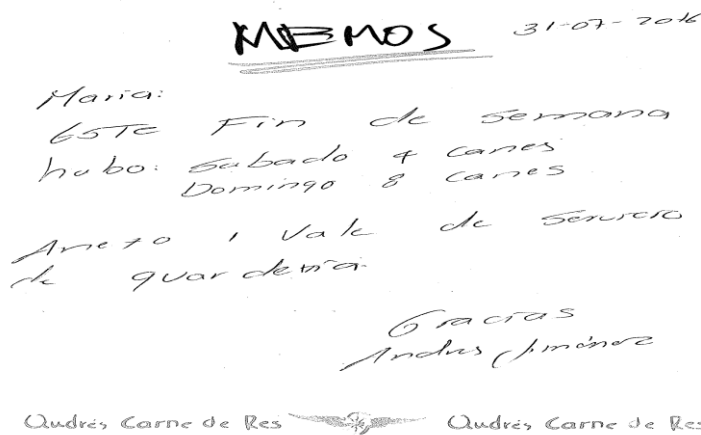 MEMOS
31-07-2016
Maria:
Este Fin de semana
hubo: Sabado 4 canes
Domingo 8 canes
Anexo 1 Vale de Servicio
de guarderia.
Gracias
Andres Jiménez
Andrés Carne de Res Andrés Carne de Res